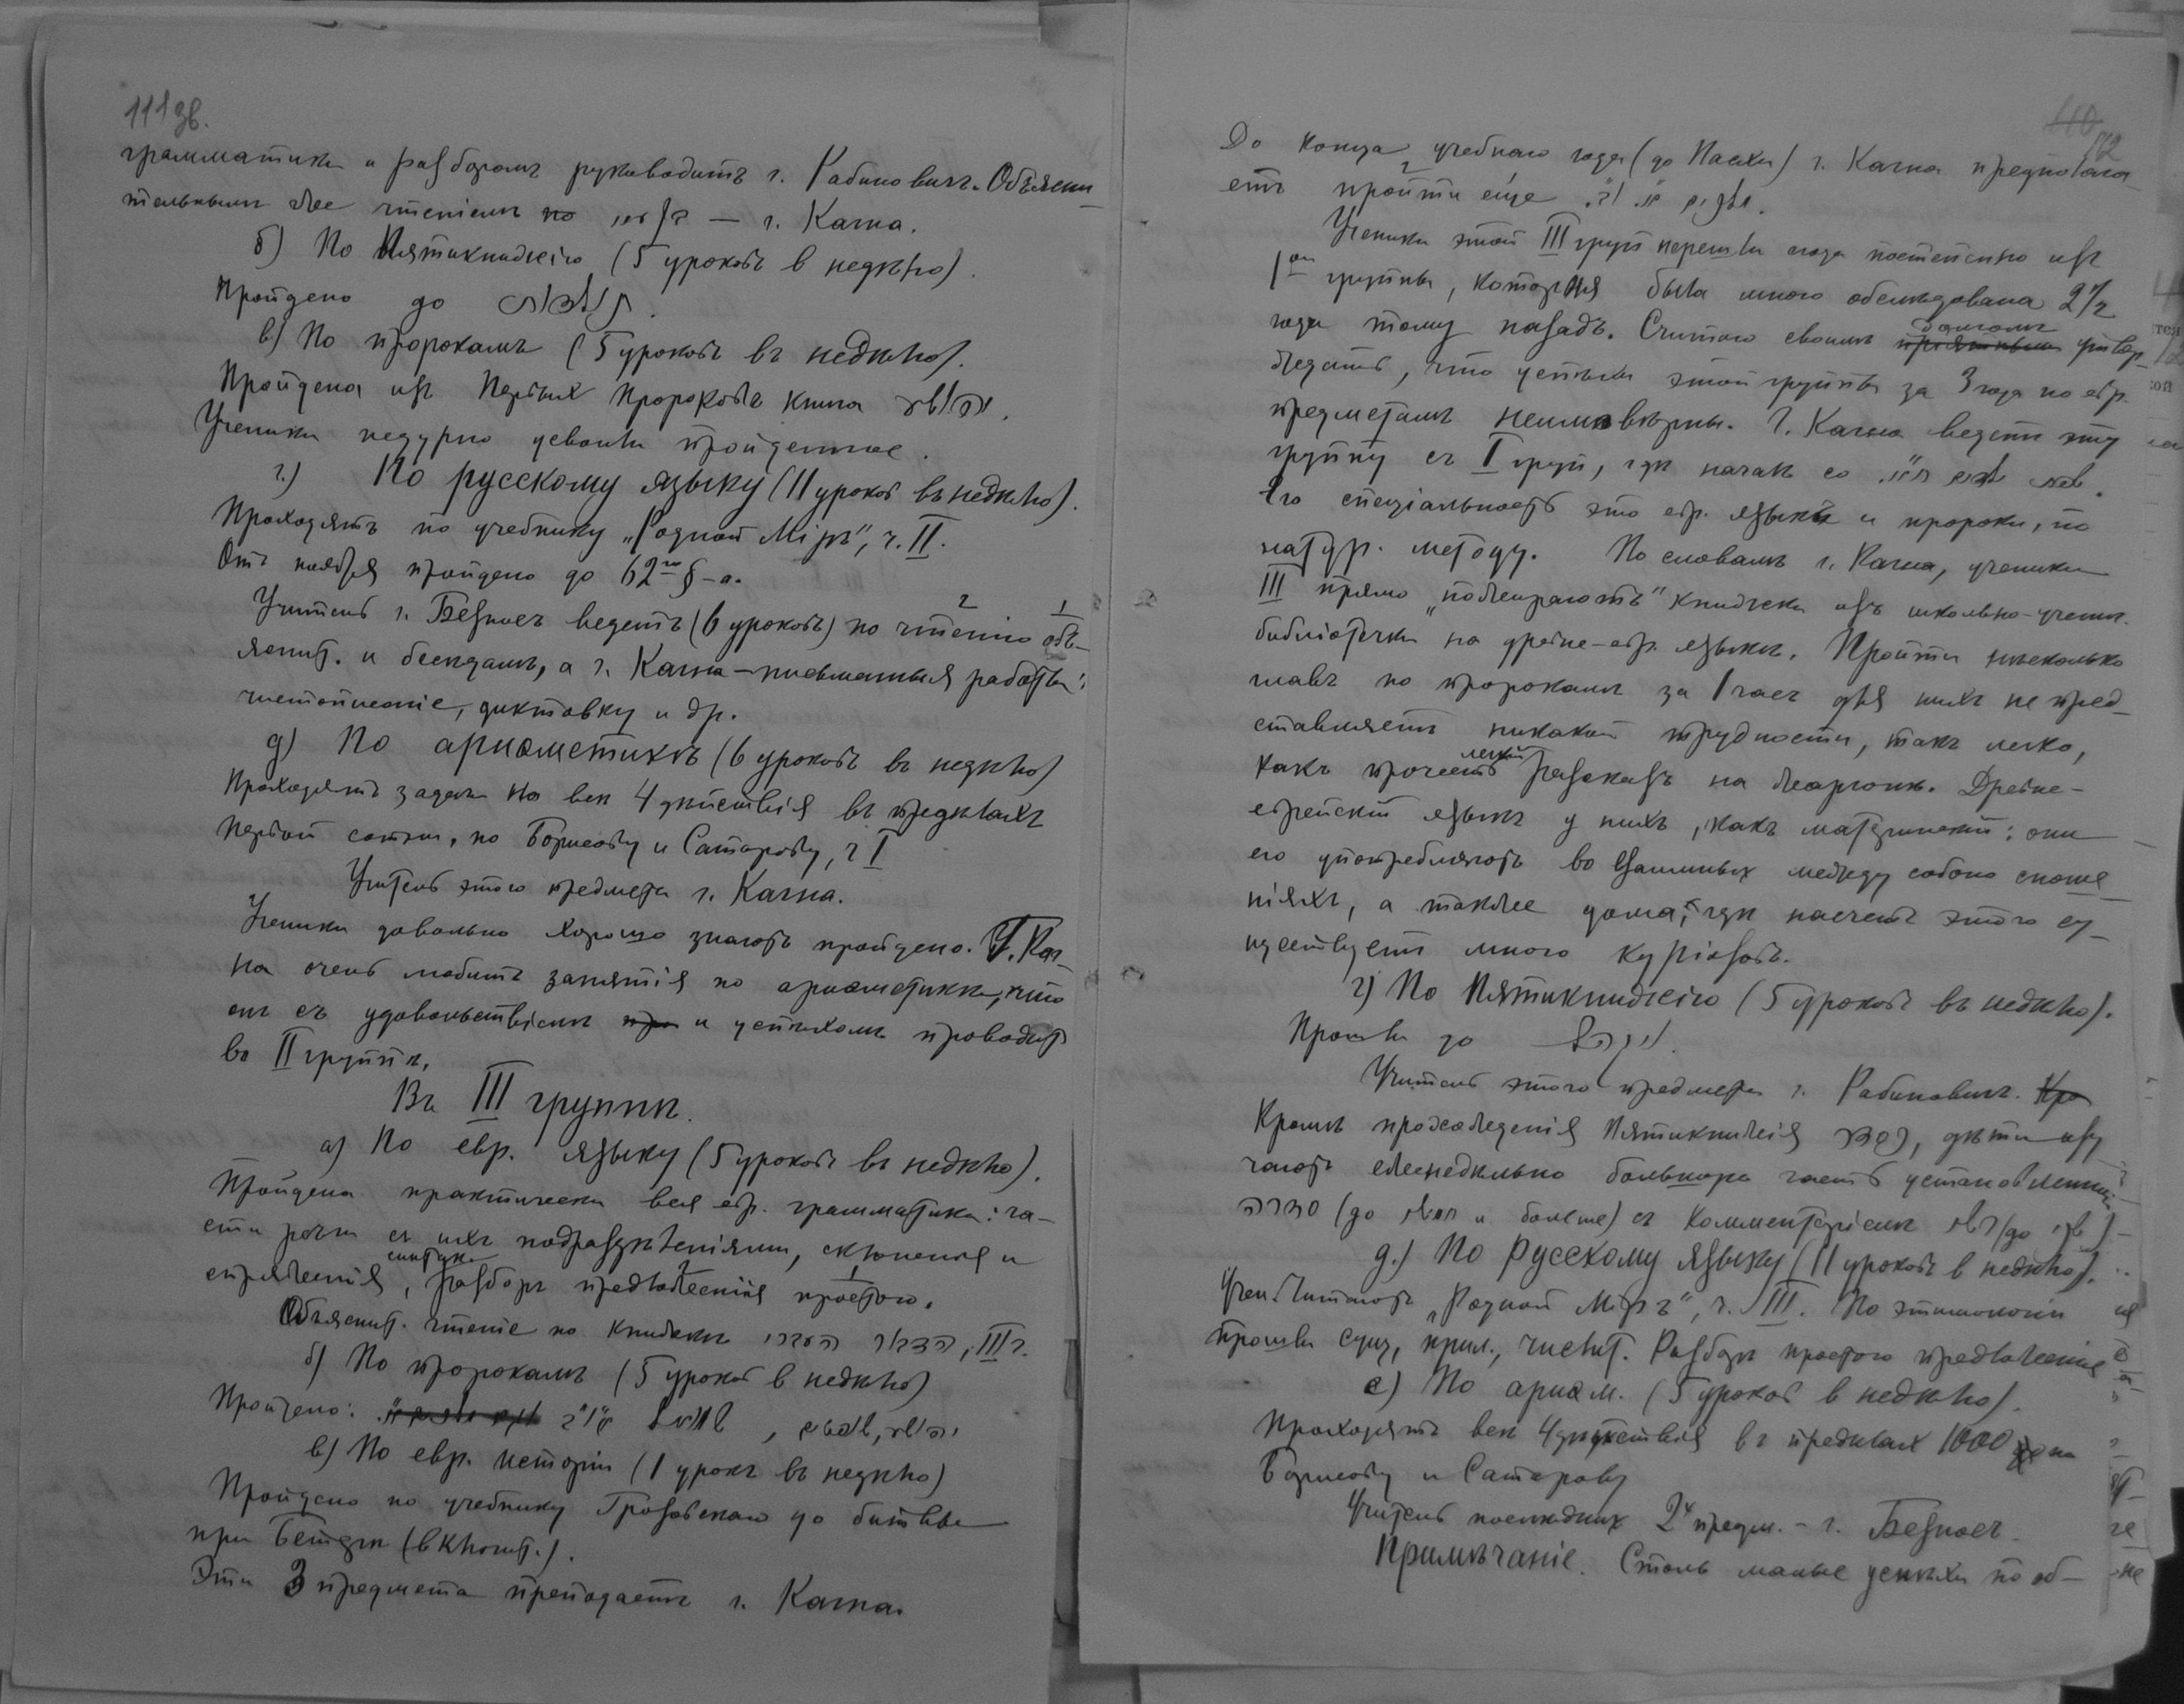 111 об.
грамматики и разборомъ руководитъ г. Рабиновичъ. Объясни-
тельнымъ же чтеніемъ по — г. Качна.
б) По Пятикнижію (5 уроковъ в недѣлю).
Пройдено до
в) По пророкамъ (5 уроковъ въ недѣлю).
Пройдена изъ Первыхъ Пророковъ книга יהושע.
Ученики недурно усвоили пройденное.
г.) По русскому языку (11 уроков въ недѣлю).
Проходятъ по учебнику „Родной Міръ", ч. II.
Отъ ноября пройдено до 62го §-а.
Учитель г. Безносъ ведетъ (6 уроковъ) по чтенію объ-
яснит. и бесѣдамъ, а г. Качна – письменныя работы:
чистописаніе, диктовку и др.
д) По ариѳметикѣ (6 уроковъ въ недѣлю)
Проходятъ задачи на всѣ 4 дѣйствія въ предѣлахъ
первой сотни, по Борисову и Сатарову, ч I
Учитель этого предмета г. Качна.
Ученики довольно хорошо знаютъ пройдено. Г. Кач-
на очень любитъ занятія по ариѳметикѣ, что
онъ съ удовольствіемъ и успѣхомъ проводитъ
во II группѣ.
Въ III группѣ.
а) По евр. языку (5 уроковъ въ недѣлю).
Пройдена практически вся евр. грамматика: ча-
сти рѣчи съ ихъ подраздѣленіями, склоненія и
спряженія, разборъ предложенія простого.
Объяснит. чтеніе по книжкѣ III ч.
б) По пророкамъ (5 уроков в недѣлю)
Пройдено: שמואל, יהושע
в) По евр. исторіи (1 урокъ въ недѣлю)
Пройдено по учебнику до битвы
при (включит.).
Эти 3 предмета преподаетъ г. Качна.
112
До конца учебнаго года (до Пасхи) г. Качна предполага-
етъ пройти еще
Ученики этой III групп перешли сюда постепенно изъ
1ой группы, которая была мною обслѣдована 2 1/2
года тому назадъ. Считаю своимъ долгомъ утвер-
ждать, что успѣхи этой группы за 3 года по евр.
предметамъ неимовѣрны. Г. Качна ведетъ эту
группу съ I групп, гдѣ началъ со
Его спеціальность это евр. языкъ и пророки, по
натур. методу. По словамъ г. Качна, ученики
III прямо „пожираютъ" книжки изъ школьно-ученич.
библіотечки на древне-евр. языкѣ. Пройти нѣсколько
главъ по пророкамъ за 1 часъ для нихъ не пред-
ставляетъ никакой трудности, такъ легко,
какъ прочесть легкій разсказъ на жаргонѣ. Древне-
еврейскій языкъ у нихъ, какъ матерински: они
его употребляютъ во взаимныхъ между собою сноше-
ніяхъ, а также дома, гдѣ насчетъ этого су-
ществуетъ много курьезовъ.
г) По Пятикнижію (5 уроковъ въ недѣлю).
Прошли до ויקהל.
Учитель этого предмета г. Рабиновичъ.
Кромѣ прохожденія Пятикнижія כסדר, дѣти изу-
чаютъ еженедѣльно большую часть установленной
סדרה (до и больше) съ комментаріемъ רש"י (до)
д.) По русскому языку (11 уроковъ в недѣлю).
Учен. читаютъ „Родной Міръ", ч. III. По этимологіи
прошли сущ., прил., числит. Разборъ простого предложенія
е) По ариѳм. (5 уроков в недѣлю).
Проходятъ всѣ 4 дѣйствія въ предѣлах 1000 по
Борисову и Сатарову
Учитель послѣднихъ 2х предм. – г. Безносъ.
Примѣчаніе. Столь малые успѣхи по об-